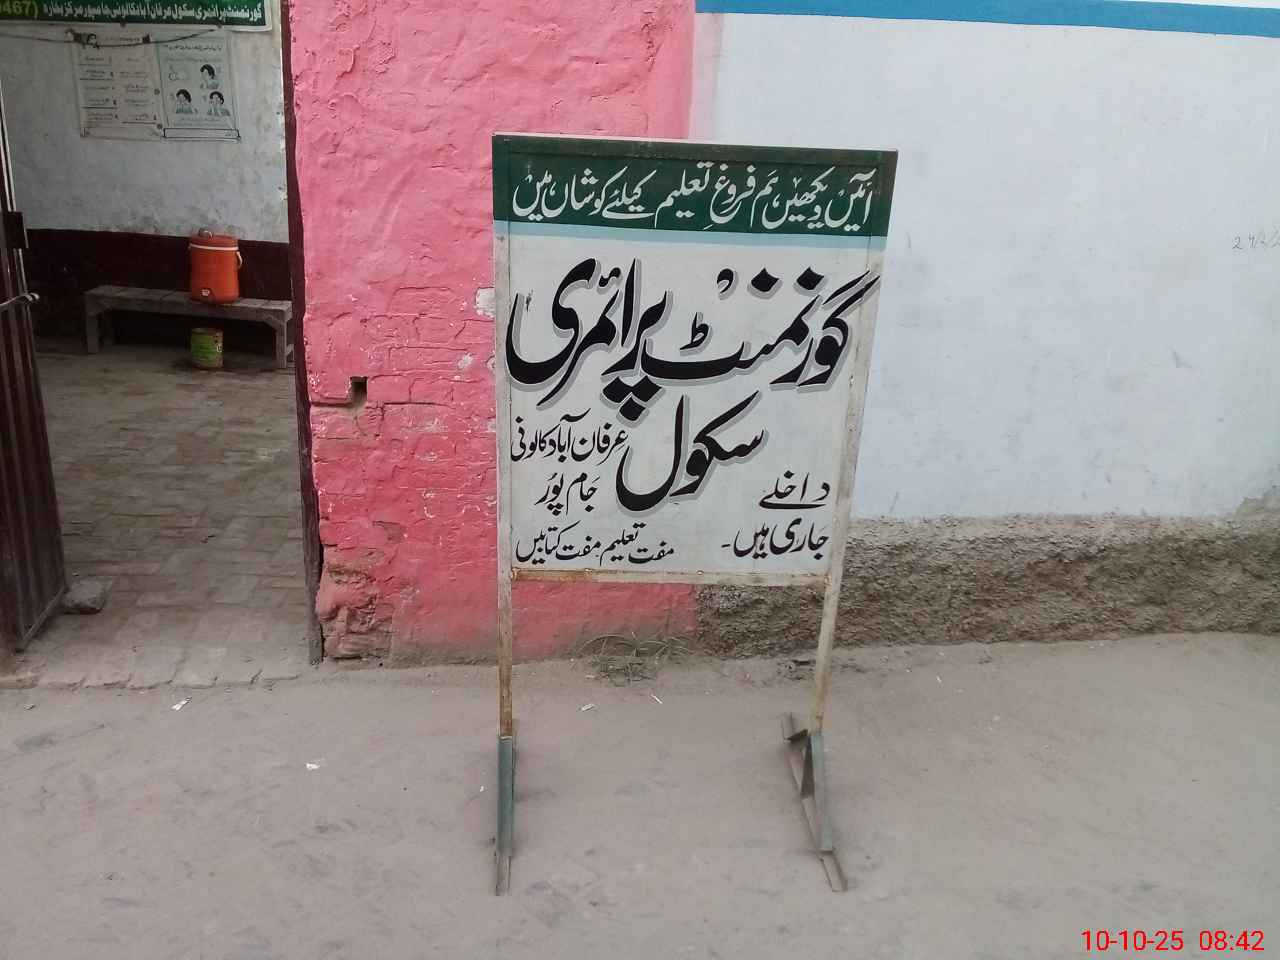 گورنمنٹ پرائمری سکول عرفان آباد کالونی جامپور مرکز بخارہ (467
آئیں دیکھیں ہم فروغِ تعلیم کیلئے کوشاں ہیں
گورنمنٹ پرائمری
سکول
عرفان آباد کالونی
جام پور
داخلے
جاری ہیں۔
مفت تعلیم مفت کتابیں
10-10-25 08:42